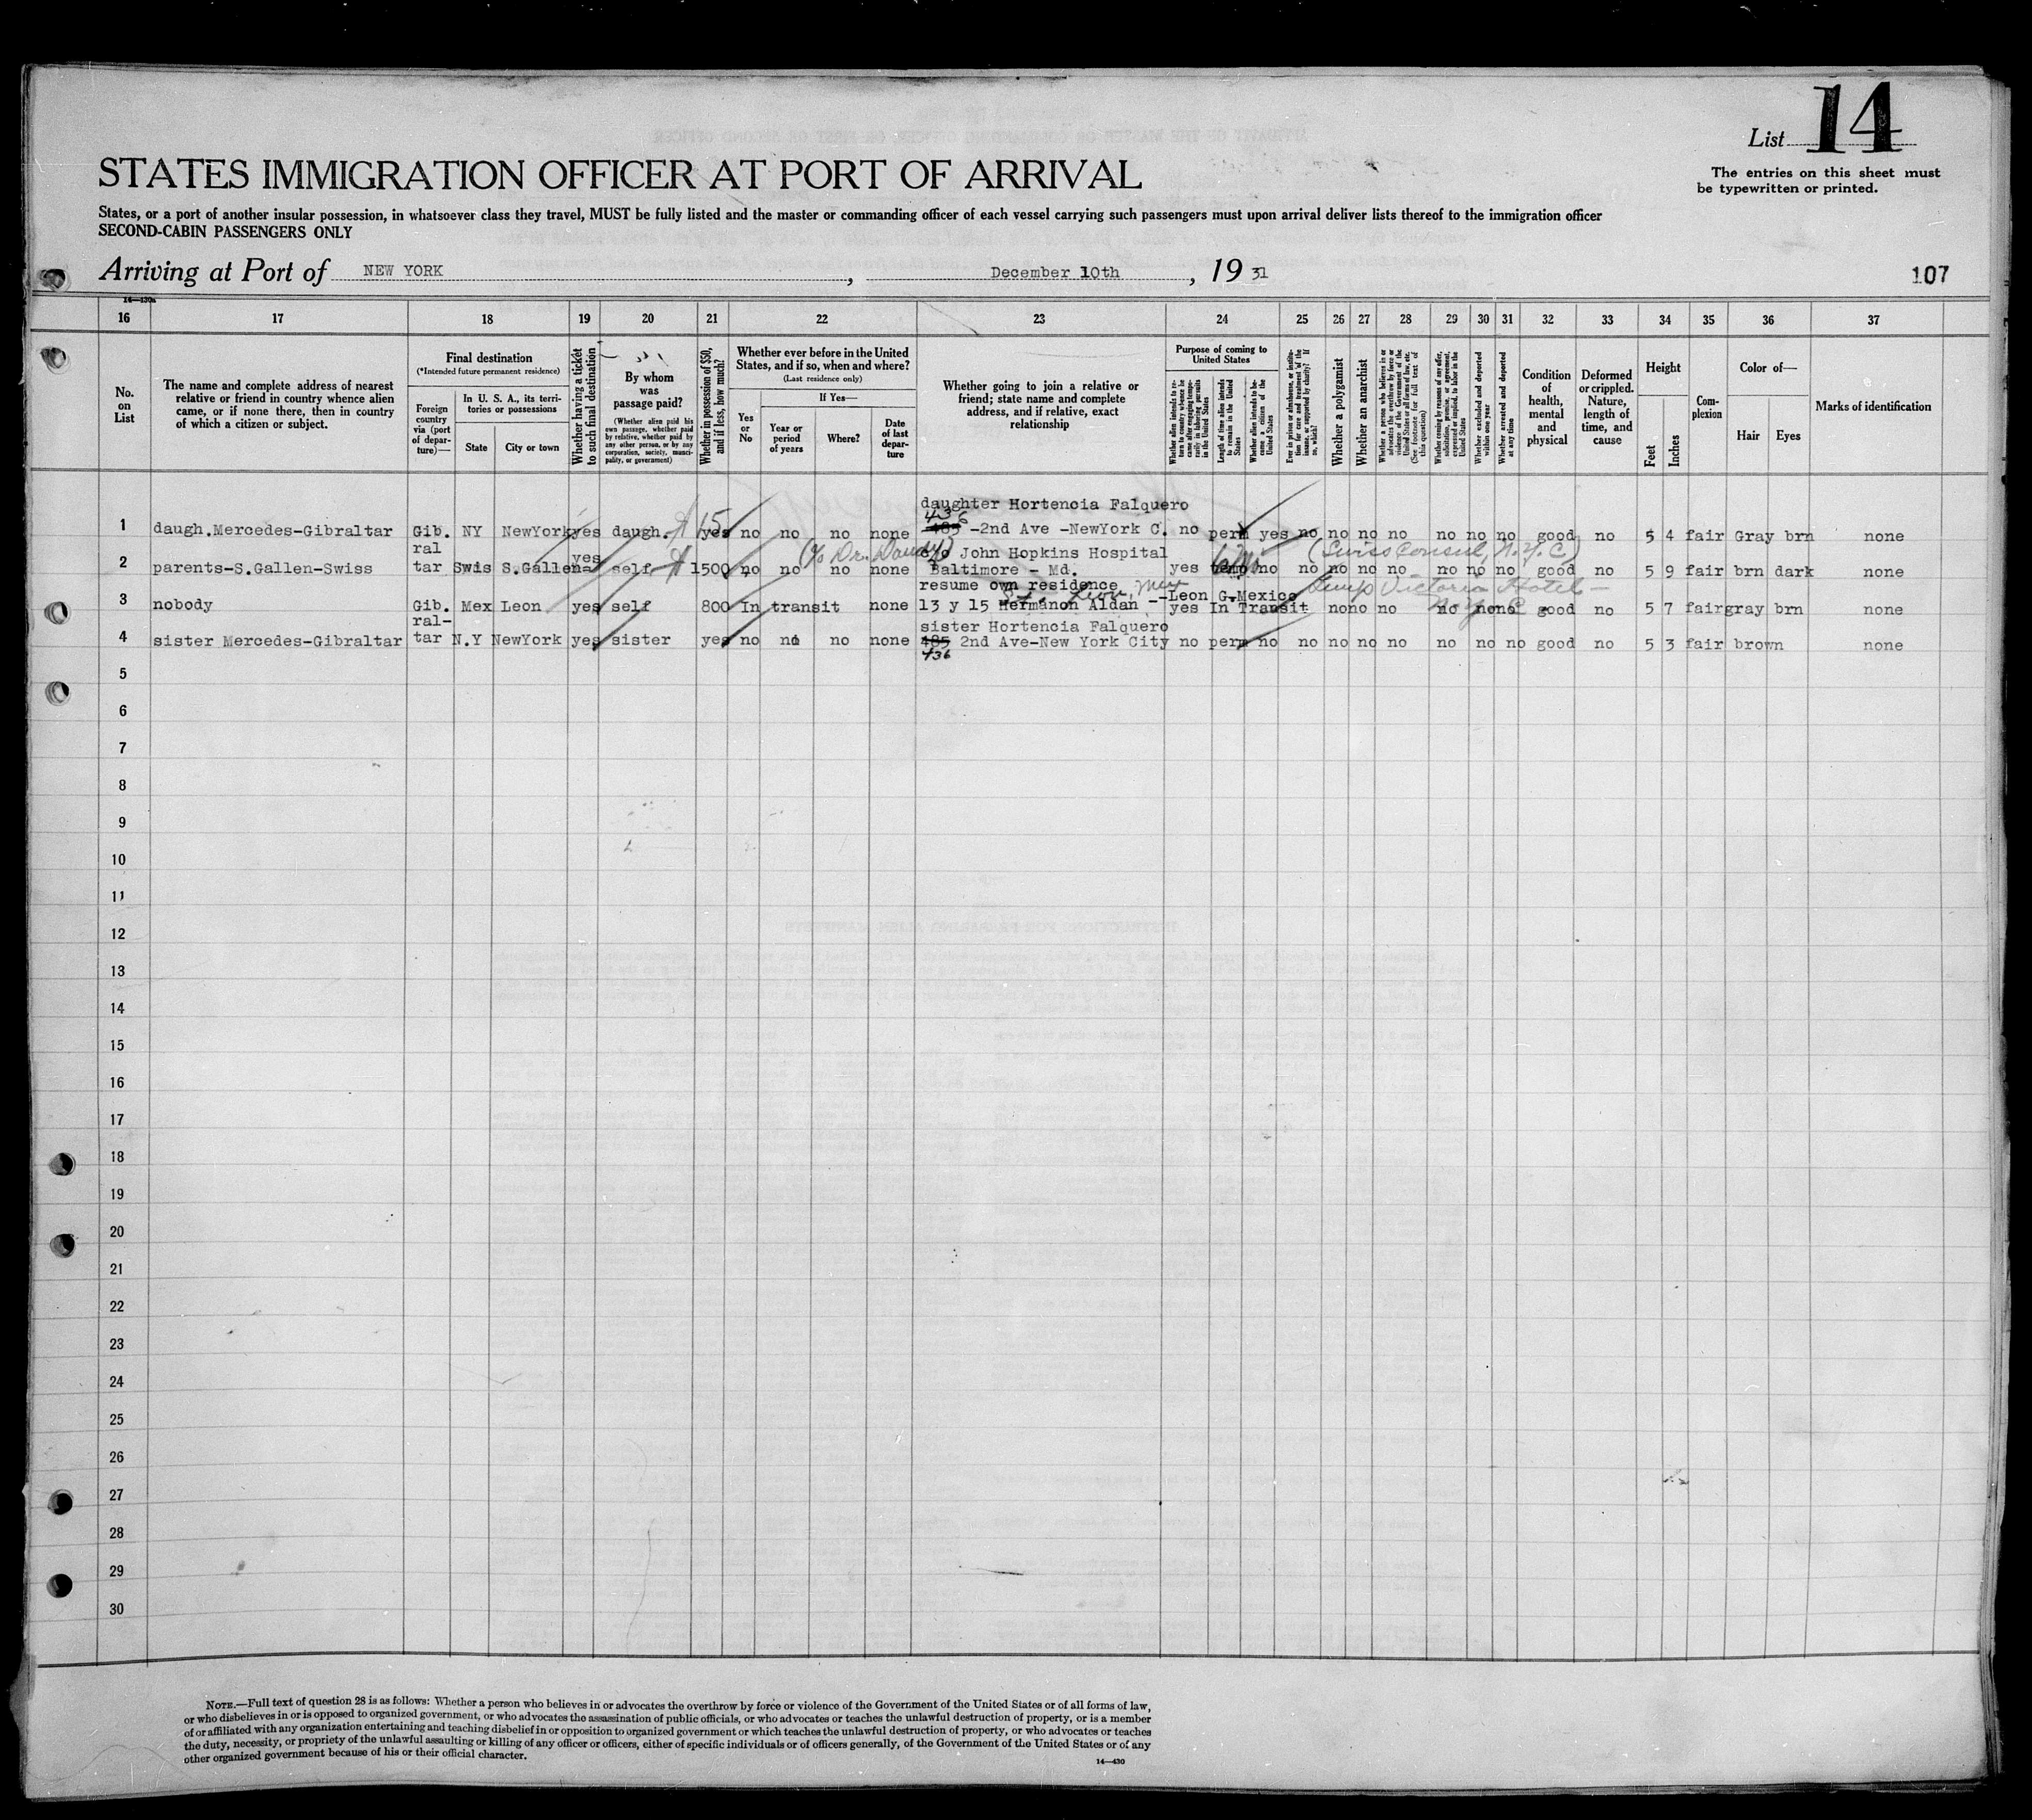 List 14
The entries on this sheet must
be typewritten or printed.
STATES IMMIGRATION OFFICER AT PORT OF ARRIVAL
States, or a port of another insular possession, in whatsoever class they travel, MUST be fully listed and the master or commanding officer of each vessel carrying such passengers must upon arrival deliver lists thereof to the immigration officer
SECOND-CABIN PASSENGERS ONLY
Arriving at Port of NEW YORK, December 10th, 19 31
107
14—430a
16 17 18 19 20 21 22 23 24 25 26 27 28 29 30 31 32 33 34 35 36 37
No. on List
The name and complete address of nearest
relative or friend in country whence alien
came, or if none there, then in country
of which a citizen or subject.
Final destination
(*Intended future permanent residence)
Foreign country via (port of departure)—
In U. S. A., its territories or possessions
State
City or town
Whether having a ticket to such final destination
By whom was passage paid?
(Whether alien paid his own passage, whether paid by relative, whether paid by any other person, or by any corporation, society, municipality, or government)
Whether in possession of $50, and if less, how much?
Whether ever before in the United
States, and if so, when and where?
(Last residence only)
Yes or No
If Yes—
Year or period of years
Where?
Date of last departure
Whether going to join a relative or
friend; state name and complete
address, and if relative, exact
relationship
Purpose of coming to United States
Whether alien intends to return to country whence he came after engaging temporarily in laboring pursuits in the United States
Length of time alien intends to remain in the United States
Whether alien intends to become a citizen of the United States
Ever in prison or almshouse, or institution for care and treatment of the insane, or supported by charity? If so, which?
Whether a polygamist
Whether an anarchist
Whether a person who believes in or advocates the overthrow by force or violence of the Government of the United States or all forms of law, etc. (See footnote for full text of this question)
Whether coming by reasons of any offer, solicitation, promise, or agreement, expressed or implied, to labor in the United States
Whether excluded and deported within one year
Whether arrested and deported at any time
Condition of health, mental and physical
Deformed or crippled. Nature, length of time, and cause
Height
Feet
Inches
Complexion
Color of—
Hair
Eyes
Marks of identification
daughter Hortencia Falquero
436
1 daugh.Mercedes-Gibraltar Gib. NY NewYork yes daugh. $15 yes no no no none 485 -2nd Ave -NewYork C. no perm yes no no no no no no no good no 5 4 fair Gray brn none
ral yes (c/o Dr. Dandy) c/o John Hopkins Hospital 6 Mo (Swiss Consul, N.Y.C)
2 parents-S.Gallen-Swiss tar Swis S.Gallen- self $1500 no no no none Baltimore - Md. yes temp no no no no no no no no good no 5 9 fair brn dark none
resume own residence
St. Leon, Mex Leon G.Mexico Temp Victoria Hotel —
3 nobody Gib. Mex Leon yes self 800 In transit none 13 y 15 Hermanon Aldan yes In Transit no no no no no no good no 5 7 fair gray brn none
N.Y.C
ral- sister Hortencia Falquero
4 sister Mercedes-Gibraltar tar N.Y NewYork yes sister yes no no no none 485 2nd Ave-New York City no perm no no no no no no no no good no 5 3 fair brown none
436
5
6
7
8
9
10
11
12
13
14
15
16
17
18
19
20
21
22
23
24
25
26
27
28
29
30
NOTE.—Full text of question 28 is as follows: Whether a person who believes in or advocates the overthrow by force or violence of the Government of the United States or of all forms of law,
or who disbelieves in or is opposed to organized government, or who advocates the assassination of public officials, or who advocates or teaches the unlawful destruction of property, or is a member
of or affiliated with any organization entertaining and teaching disbelief in or opposition to organized government or which teaches the unlawful destruction of property, or who advocates or teaches
the duty, necessity, or propriety of the unlawful assaulting or killing of any officer or officers, either of specific individuals or of officers generally, of the Government of the United States or of any
other organized government because of his or their official character.
14—430